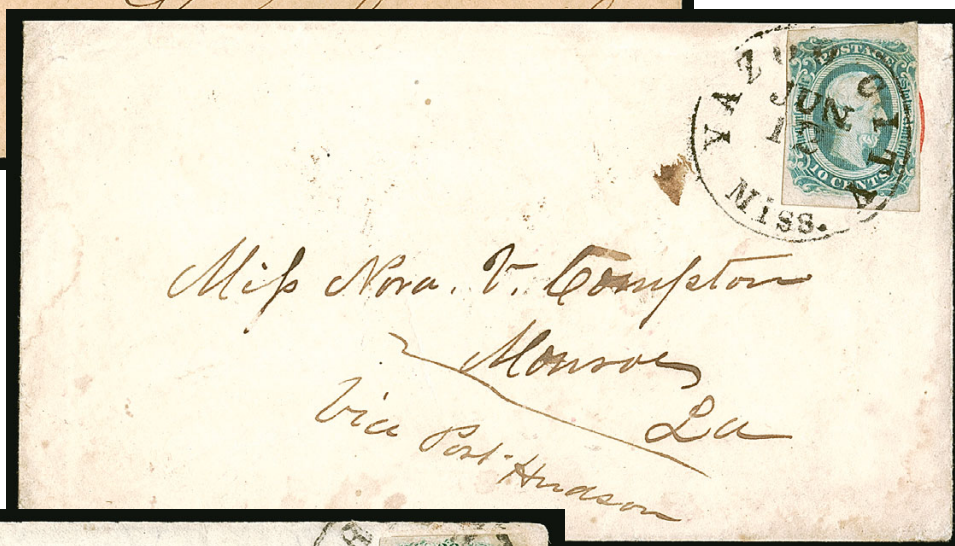 YAZOO CITY
JUN
10
MISS.
POSTAGE
10 CENTS
Miss Nora. V. Compton
Monroe
La
Via Port Hudson